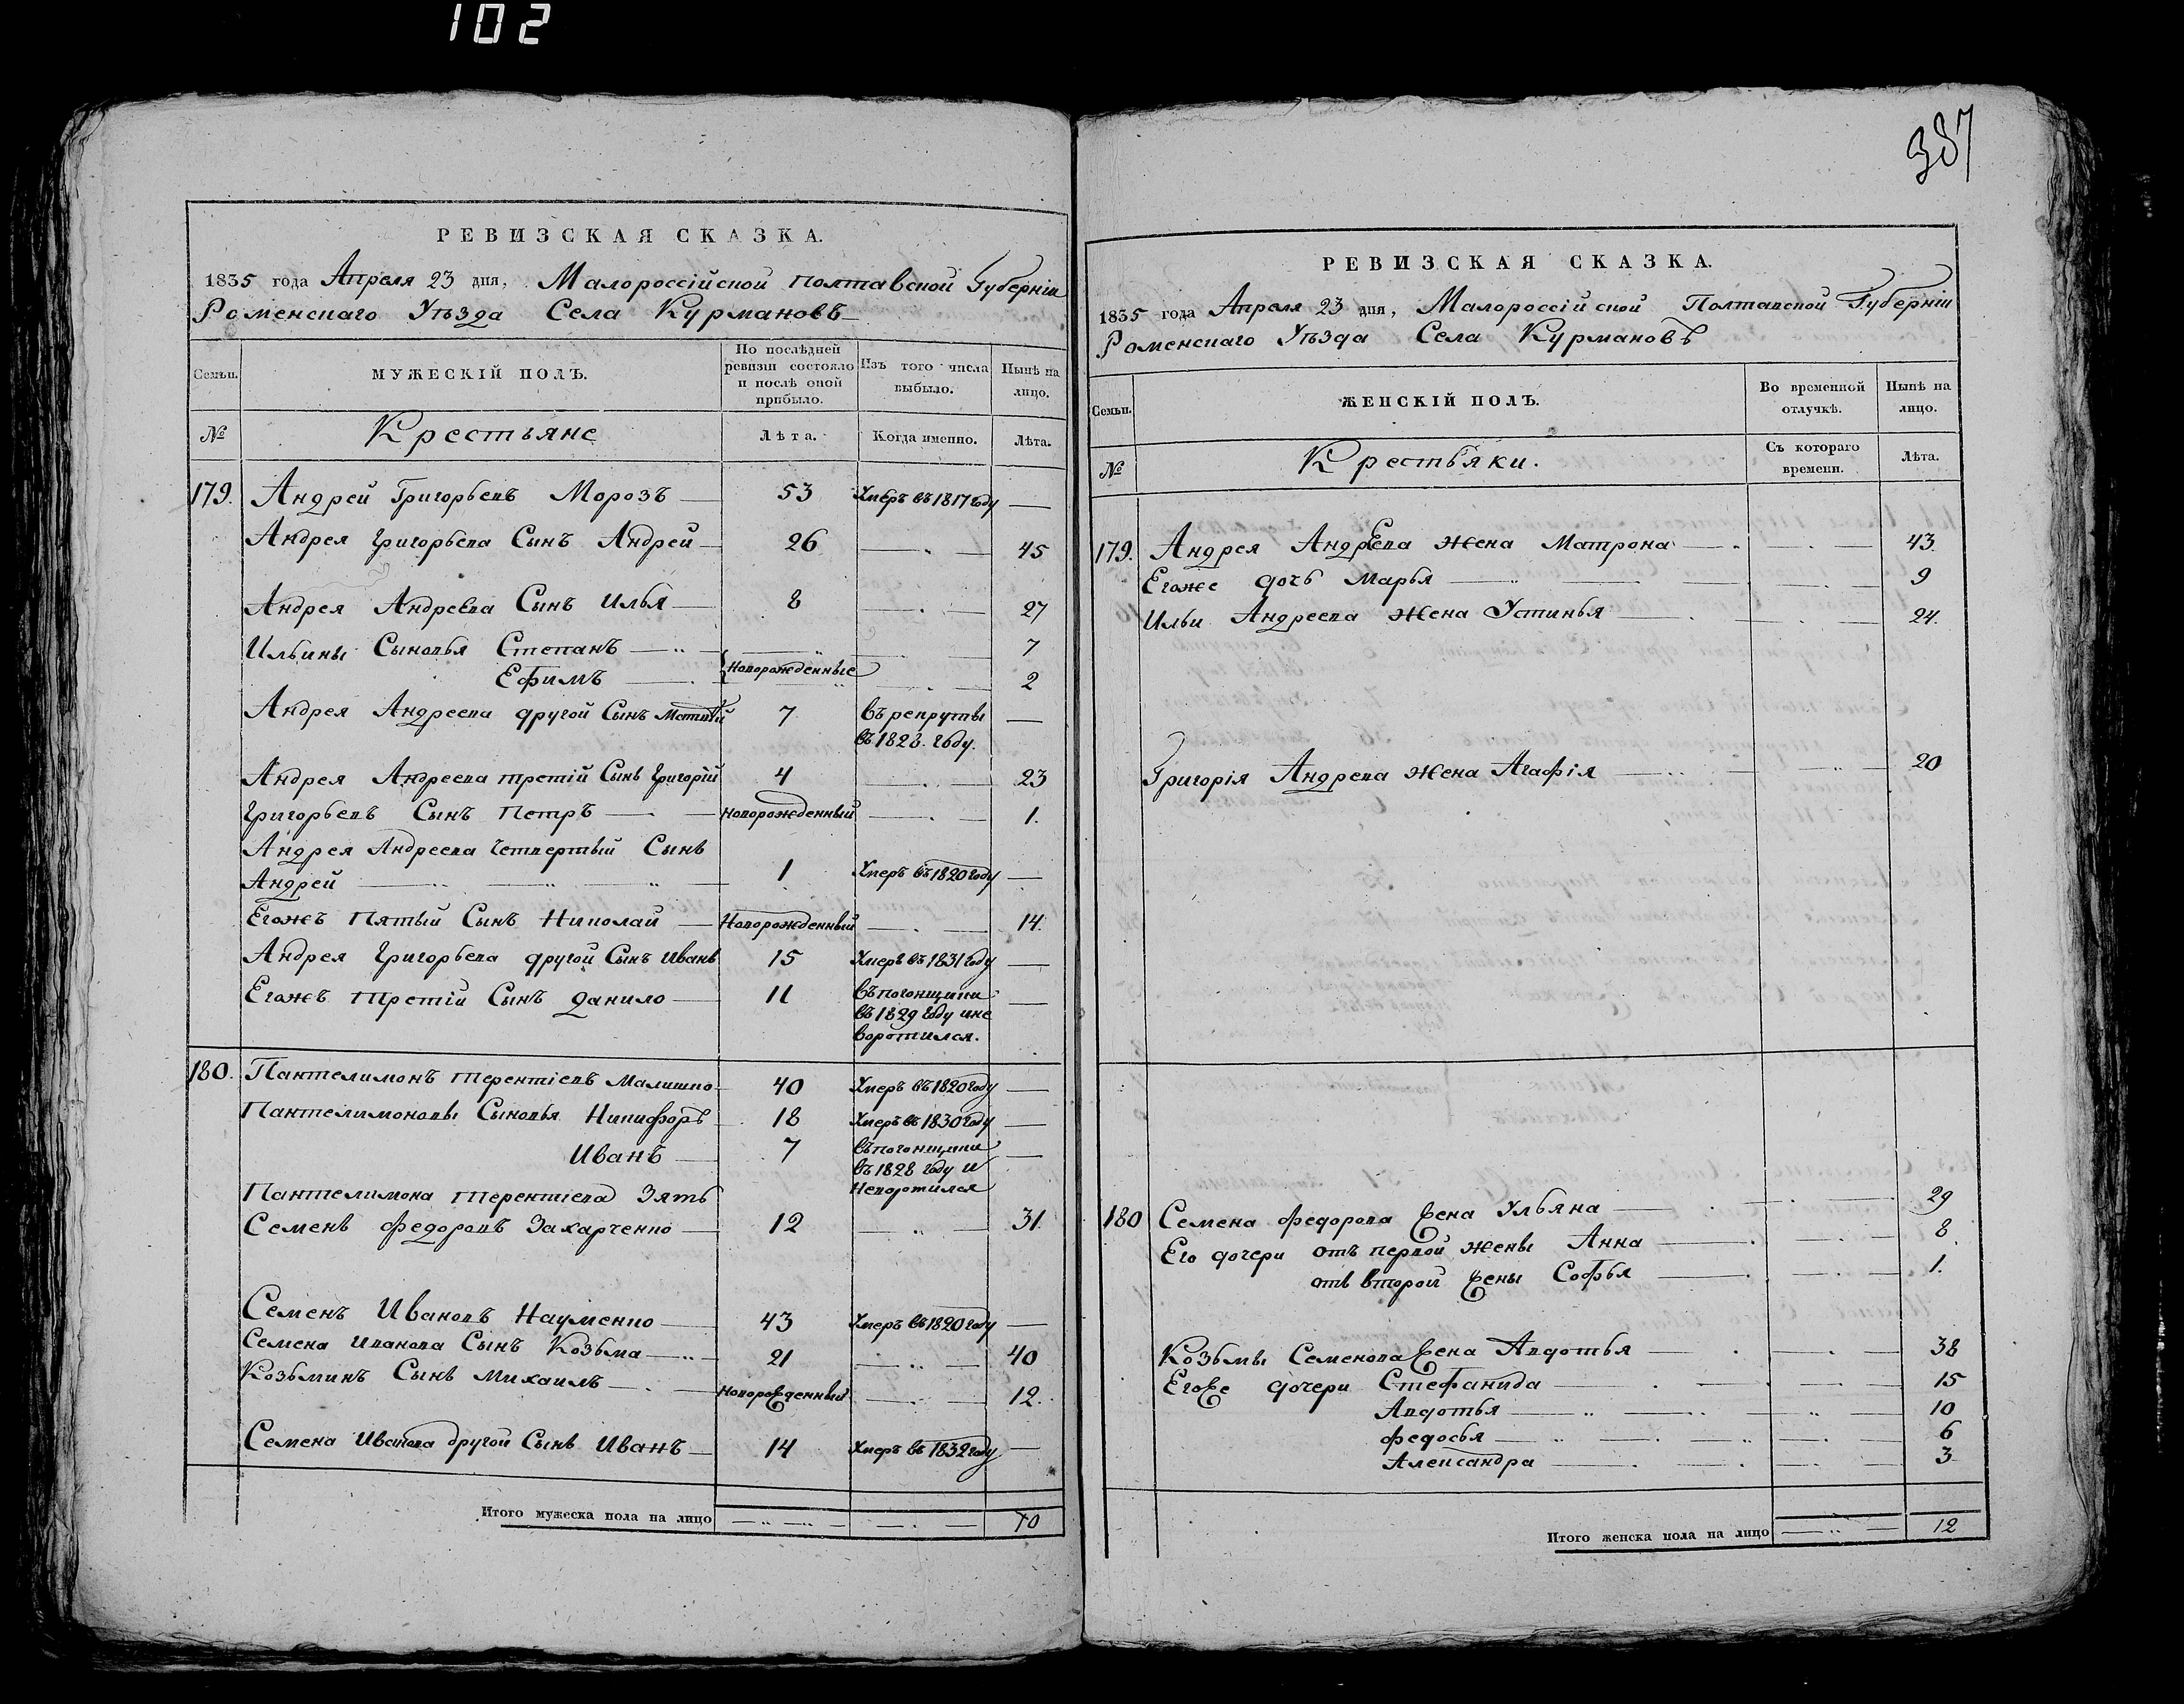 102
387
РЕВИЗСКАЯ СКАЗКА.
1835 года Апреля 23 дня, Малороссійской Полтавской Губерніи
Роменскаго Уѣзда Села Курмановъ
Семьи.
МУЖЕСКІЙ ПОЛЪ.
По послѣдней ревизіи состояло и послѣ оной прибыло.
Изъ того числа выбыло.
Нынѣ на лицо.
№
Крестьяне
Лѣта.
Когда именно.
Лѣта.
179. Андрей Григорьевъ Морозъ 53 Умеръ въ 1817 году
Андрея Григорьева Сынъ Андрей 26 45
Андрея Андреева Сынъ Илья 8 27
Ильины Сыновья Степанъ 7
Ефимъ Новорожденные 2
Андрея Андреева другой Сынъ Матвѣй 7 Въ рекруты
въ 1828. году.
Андрея Андреева третій Сынъ Григорій 4 23
Григорьевъ Сынъ Петръ Новорожденный 1.
Андрея Андреева Четвертый Сынъ
Андрей 1 Умеръ въ 1820 году
Егожъ Пятый Сынъ Николай Новорожденный 14.
Андрея Григорьева другой Сынъ Иванъ 15 Умеръ въ 1831 году
Егожъ Третій Сынъ Данило 11 Въ погонщики
въ 1829 году и не
воротился.
180. Пантелимонъ Терентіевъ Малишко 40 Умеръ въ 1820 году
Пантелимоновы Сыновья Никифоръ 18 Умеръ въ 1830 году
Иванъ 7 Въ погонщики
въ 1828 году и
Неворотился
Пантелимона Терентіева Зять
Семенъ Федоровъ Захарченко 12 31.
Семенъ Ивановъ Науменко 43 Умеръ въ 1820 году
Семена Иванова Сынъ Козьма 21 40
Козьминъ Сынъ Михаилъ Новорожденный 12.
Семена Иванова другой Сынъ Иванъ 14 Умеръ въ 1832 году
Итого мужеска пола на лицо 10
РЕВИЗСКАЯ СКАЗКА.
1835 года Апреля 23 дня, Малороссійской Полтавской Губерніи
Роменскаго Уѣзда Села Курмановъ
Семьи.
ЖЕНСКІЙ ПОЛЪ.
Во временной отлучкѣ.
Нынѣ на лицо.
№
Крестьяки.
Съ котораго времени.
Лѣта.
179. Андрея Андрева Жена Матрона 43.
Егоже дочь Марья 9
Ильи Андреева Жена Устинья 24.
Григорія Андрева Жена Агафія 20
180 Семена Федорова Жена Ульяна 29
Его дочери отъ первой Жены Анна 8.
отъ второй Жены Софья 1.
Козьмы Семенова Жена Авдотья 38
Егоже дочери Стефанида 15
Авдотья 10
Федосья 6
Александра 3
Итого женска пола на лицо 12